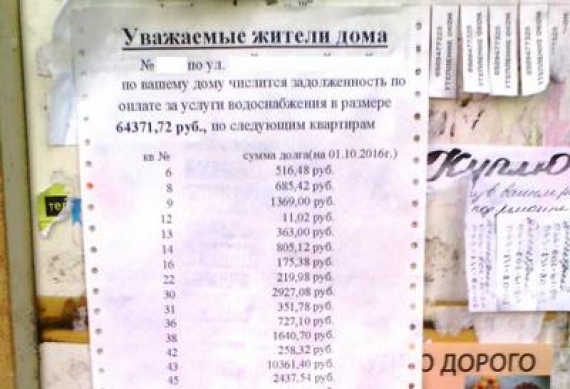 Уважаемые жители дома
№ по ул.
по вашему дому числится задолженность по
оплате за услуги водоснабжения в размере
64371,72 руб., по следующим квартирам
кв № сумма долга(на 01.10.2016г.)
6 516,48 руб.
8 685,42 руб.
9 1369,00 руб.
12 11,02 руб.
13 363,00 руб.
14 805,12 руб.
16 175,38 руб.
22 219,98 руб.
30 2927,08 руб.
31 351,78 руб.
36 727,10 руб.
38 1640,70 руб.
42 258,32 руб.
43 10361,40 руб.
45 2437,54 руб.
Куплю
О ДОРОГО